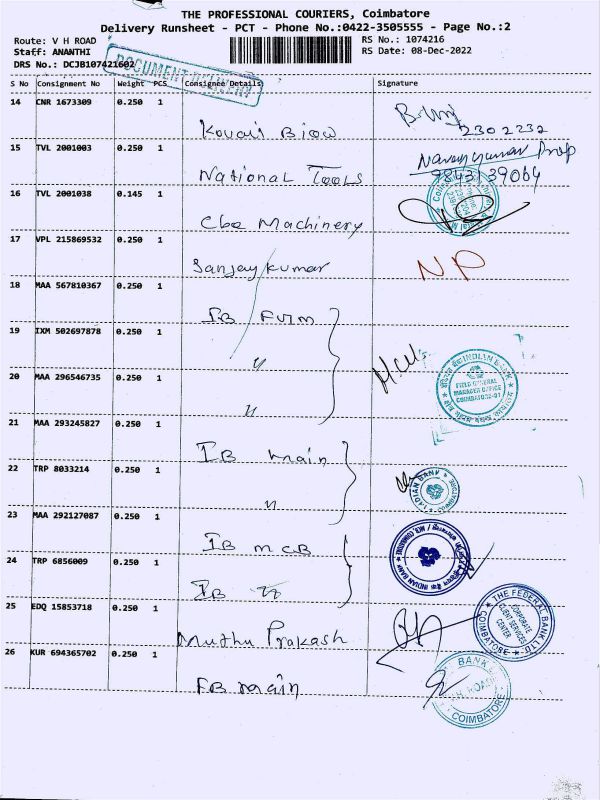 THE PROFESSIONAL COURIERS, Coimbatore
Delivery Runsheet - PCT - Phone No.:0422-3505555 - Page No.:2
Route: V H ROAD RS No.: 1074216
Staff: ANANTHI RS Date: 08-Dec-2022
DRS No.: DCJB107421602
DOCUMENT DELIVERY
S No Consignment No Weight PCS Consignee Details Signature
14 CNR 1673309 0.250 1
2302232
15 TVL 2001003 0.250 1
National Tools 9843139064
16 TVL 2001038 0.145 1
Cbe Machinery
17 VPL 215869532 0.250 1
Sanjay kumar NP
18 MAA 567810367 0.250 1
IB FGM
19 IXM 502697878 0.250 1
"
INDIAN BANK
FIELD GENERAL
MANAGER OFFICE
COIMBATORE-01
20 MAA 296546735 0.250 1
"
21 MAA 293245827 0.250 1
IB main
22 TRP 8033214 0.250 1
"
INDIAN BANK
COIMBATORE
23 MAA 292127087 0.250 1
IB MCB
INDIAN BANK
24 TRP 6856009 0.250 1
IB
25 EDQ 15853718 0.250 1
Muthu Prakash
THE FEDERAL BANK LTD
CORPORATE
CLIENT SERVICES
CENTER
COIMBATORE
26 KUR 694365702 0.250 1
FB main
BANK
V.H. ROAD
COIMBATORE